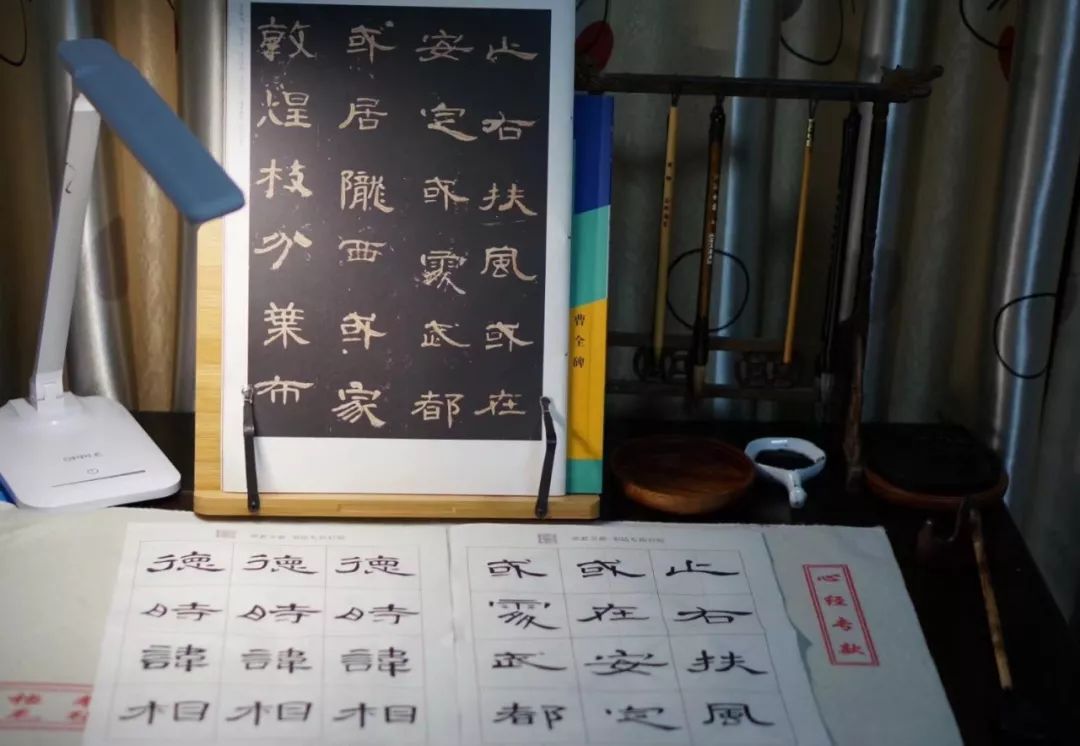 止右扶風或在
安定或處武都
或居隴西或家
敦煌枝分葉布
曹全碑
止右扶風
或在安定
或處武都
德時諱相
德時諱相
德時諱相
心经专款